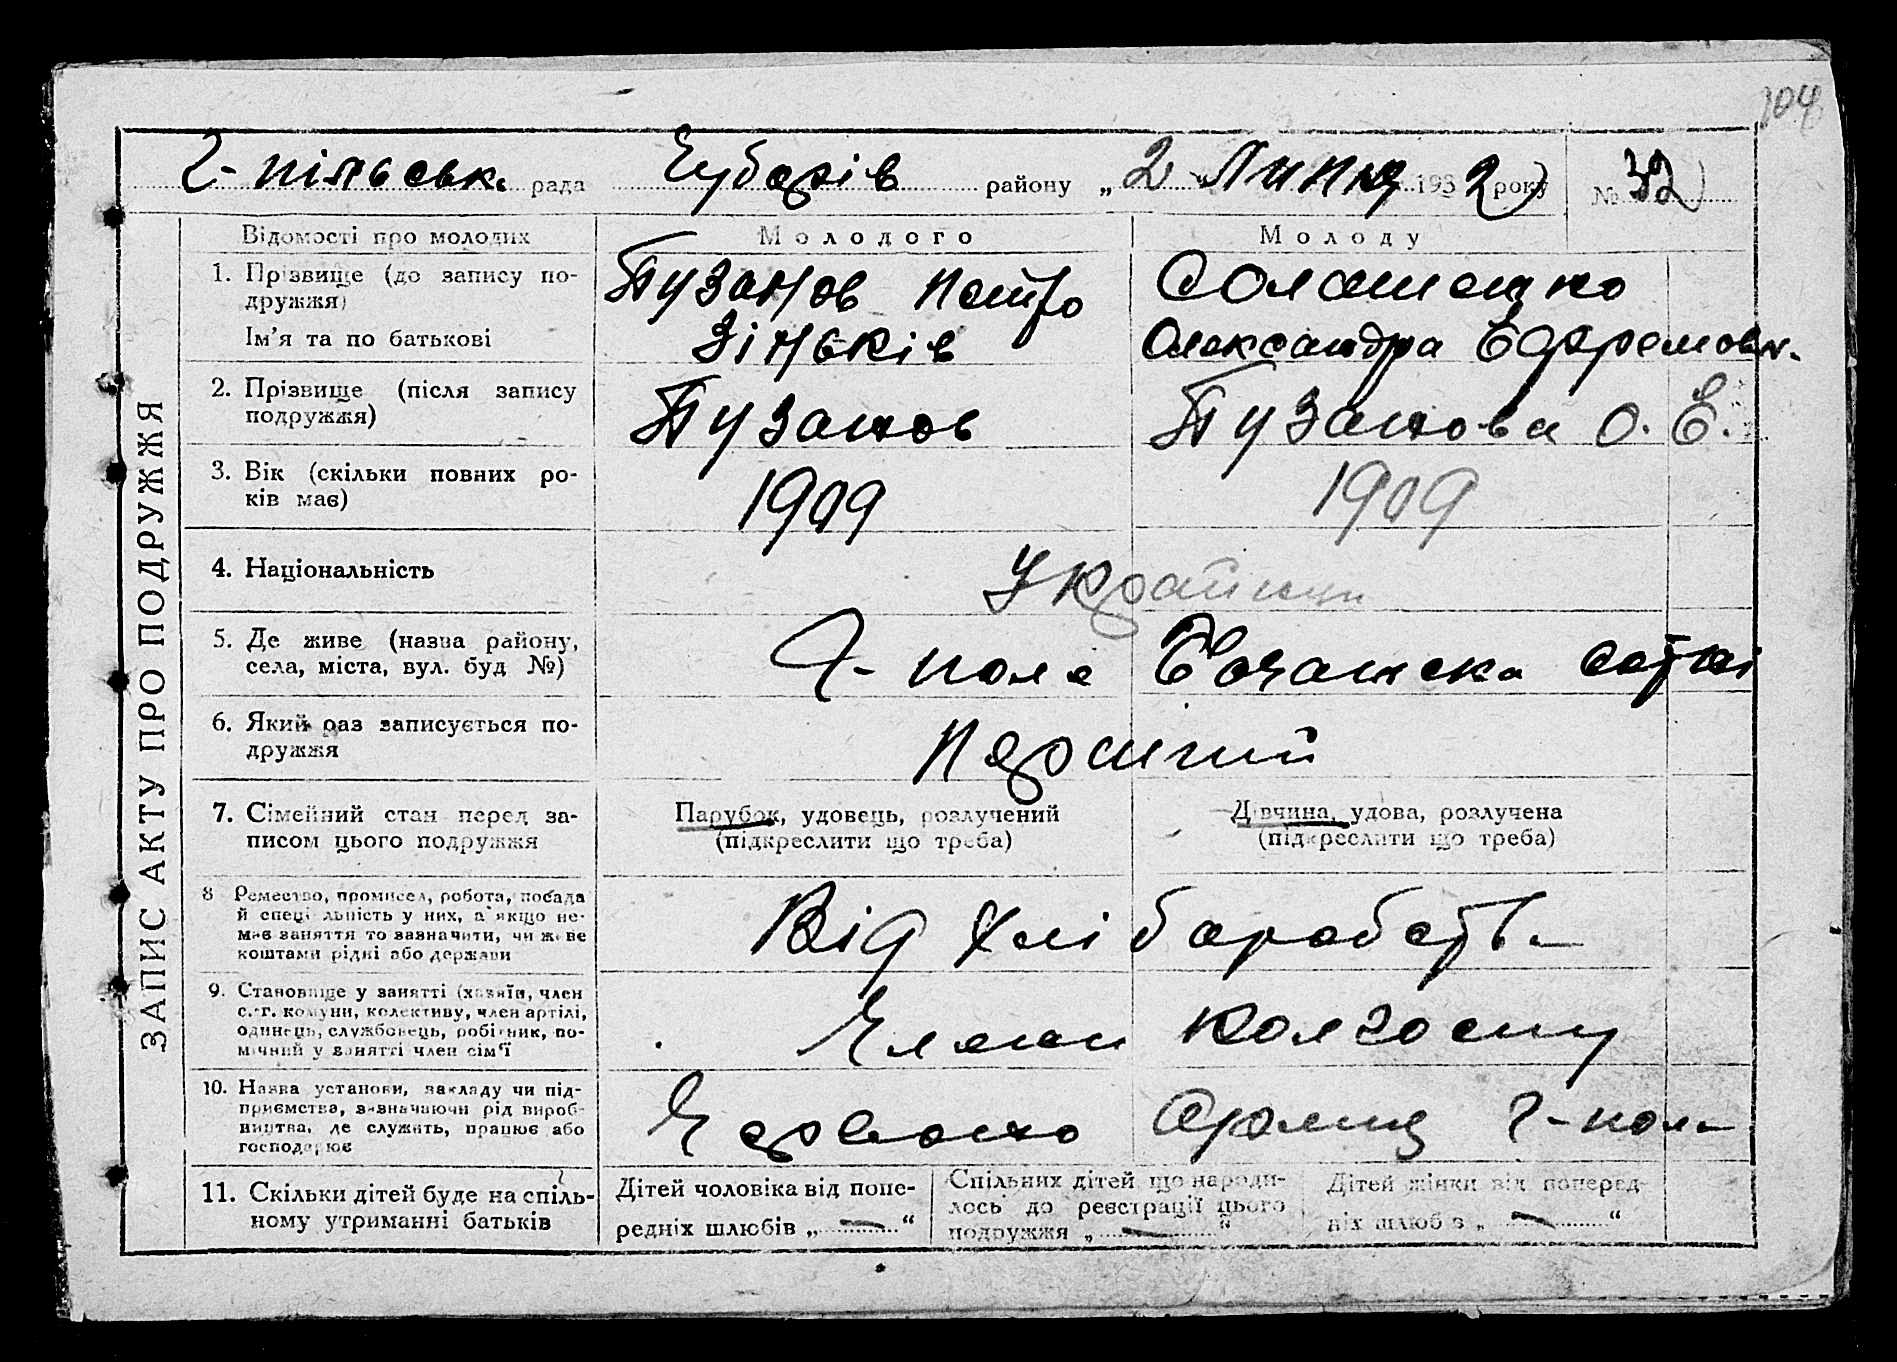 104
Г-пільськ. рада Чубарів району „2" Липня 1932 року № 32
Відомості про молодих
Молодого
Молоду
1. Прізвище (до запису по-
дружжя)
Ім'я та по батькові
Пузанов Петро
Зіньків
Соломенко
Олександра Ефремовн.
2. Прізвище (після запису
подружжя)
Пузанов
Пузанова О. Е.
3. Вік (скільки повних ро-
ків має)
1909
1909
4. Національність
Українци
5. Де живе (назва району,
села, міста, вул. буд №)
Г-поле сотні
6. Який раз записується по-
дружжя
Перший
7. Сімейний стан перед за-
писом цього подружжя
Парубок, удовець, розлучений
(підкреслити що треба)
Дівчина, удова, розлучена
(підкреслити що треба)
8 Ремество, промисел, робота, посада
й спеціяльність у них, а якщо не-
має заняття то зазначити, чи живе
коштами рідні або держави
Від хліборобств
9. Становище у занятті (хазяїн, член
с.-г. комуни, колективу, член артілі,
одинець, службовець, робітник, по-
мічний у занятті член сім'ї
Члени колгоспу
10. Назва установи, закладу чи під-
приємства, зазначаючи рід вироб-
ництва, де служить, працює або
господарює
Червоно Армиц Г-поле
11. Скільки дітей буде на спіль-
ному утриманні батьків
Дітей чоловіка від попе-
редніх шлюбів „ — "
Спільних дітей що народи-
лось до реєстрації цього
подружжя „ — "
Дітей жінки від поперед-
ніх шлюбів „ — "
ЗАПИС АКТУ ПРО ПОДРУЖЖЯ